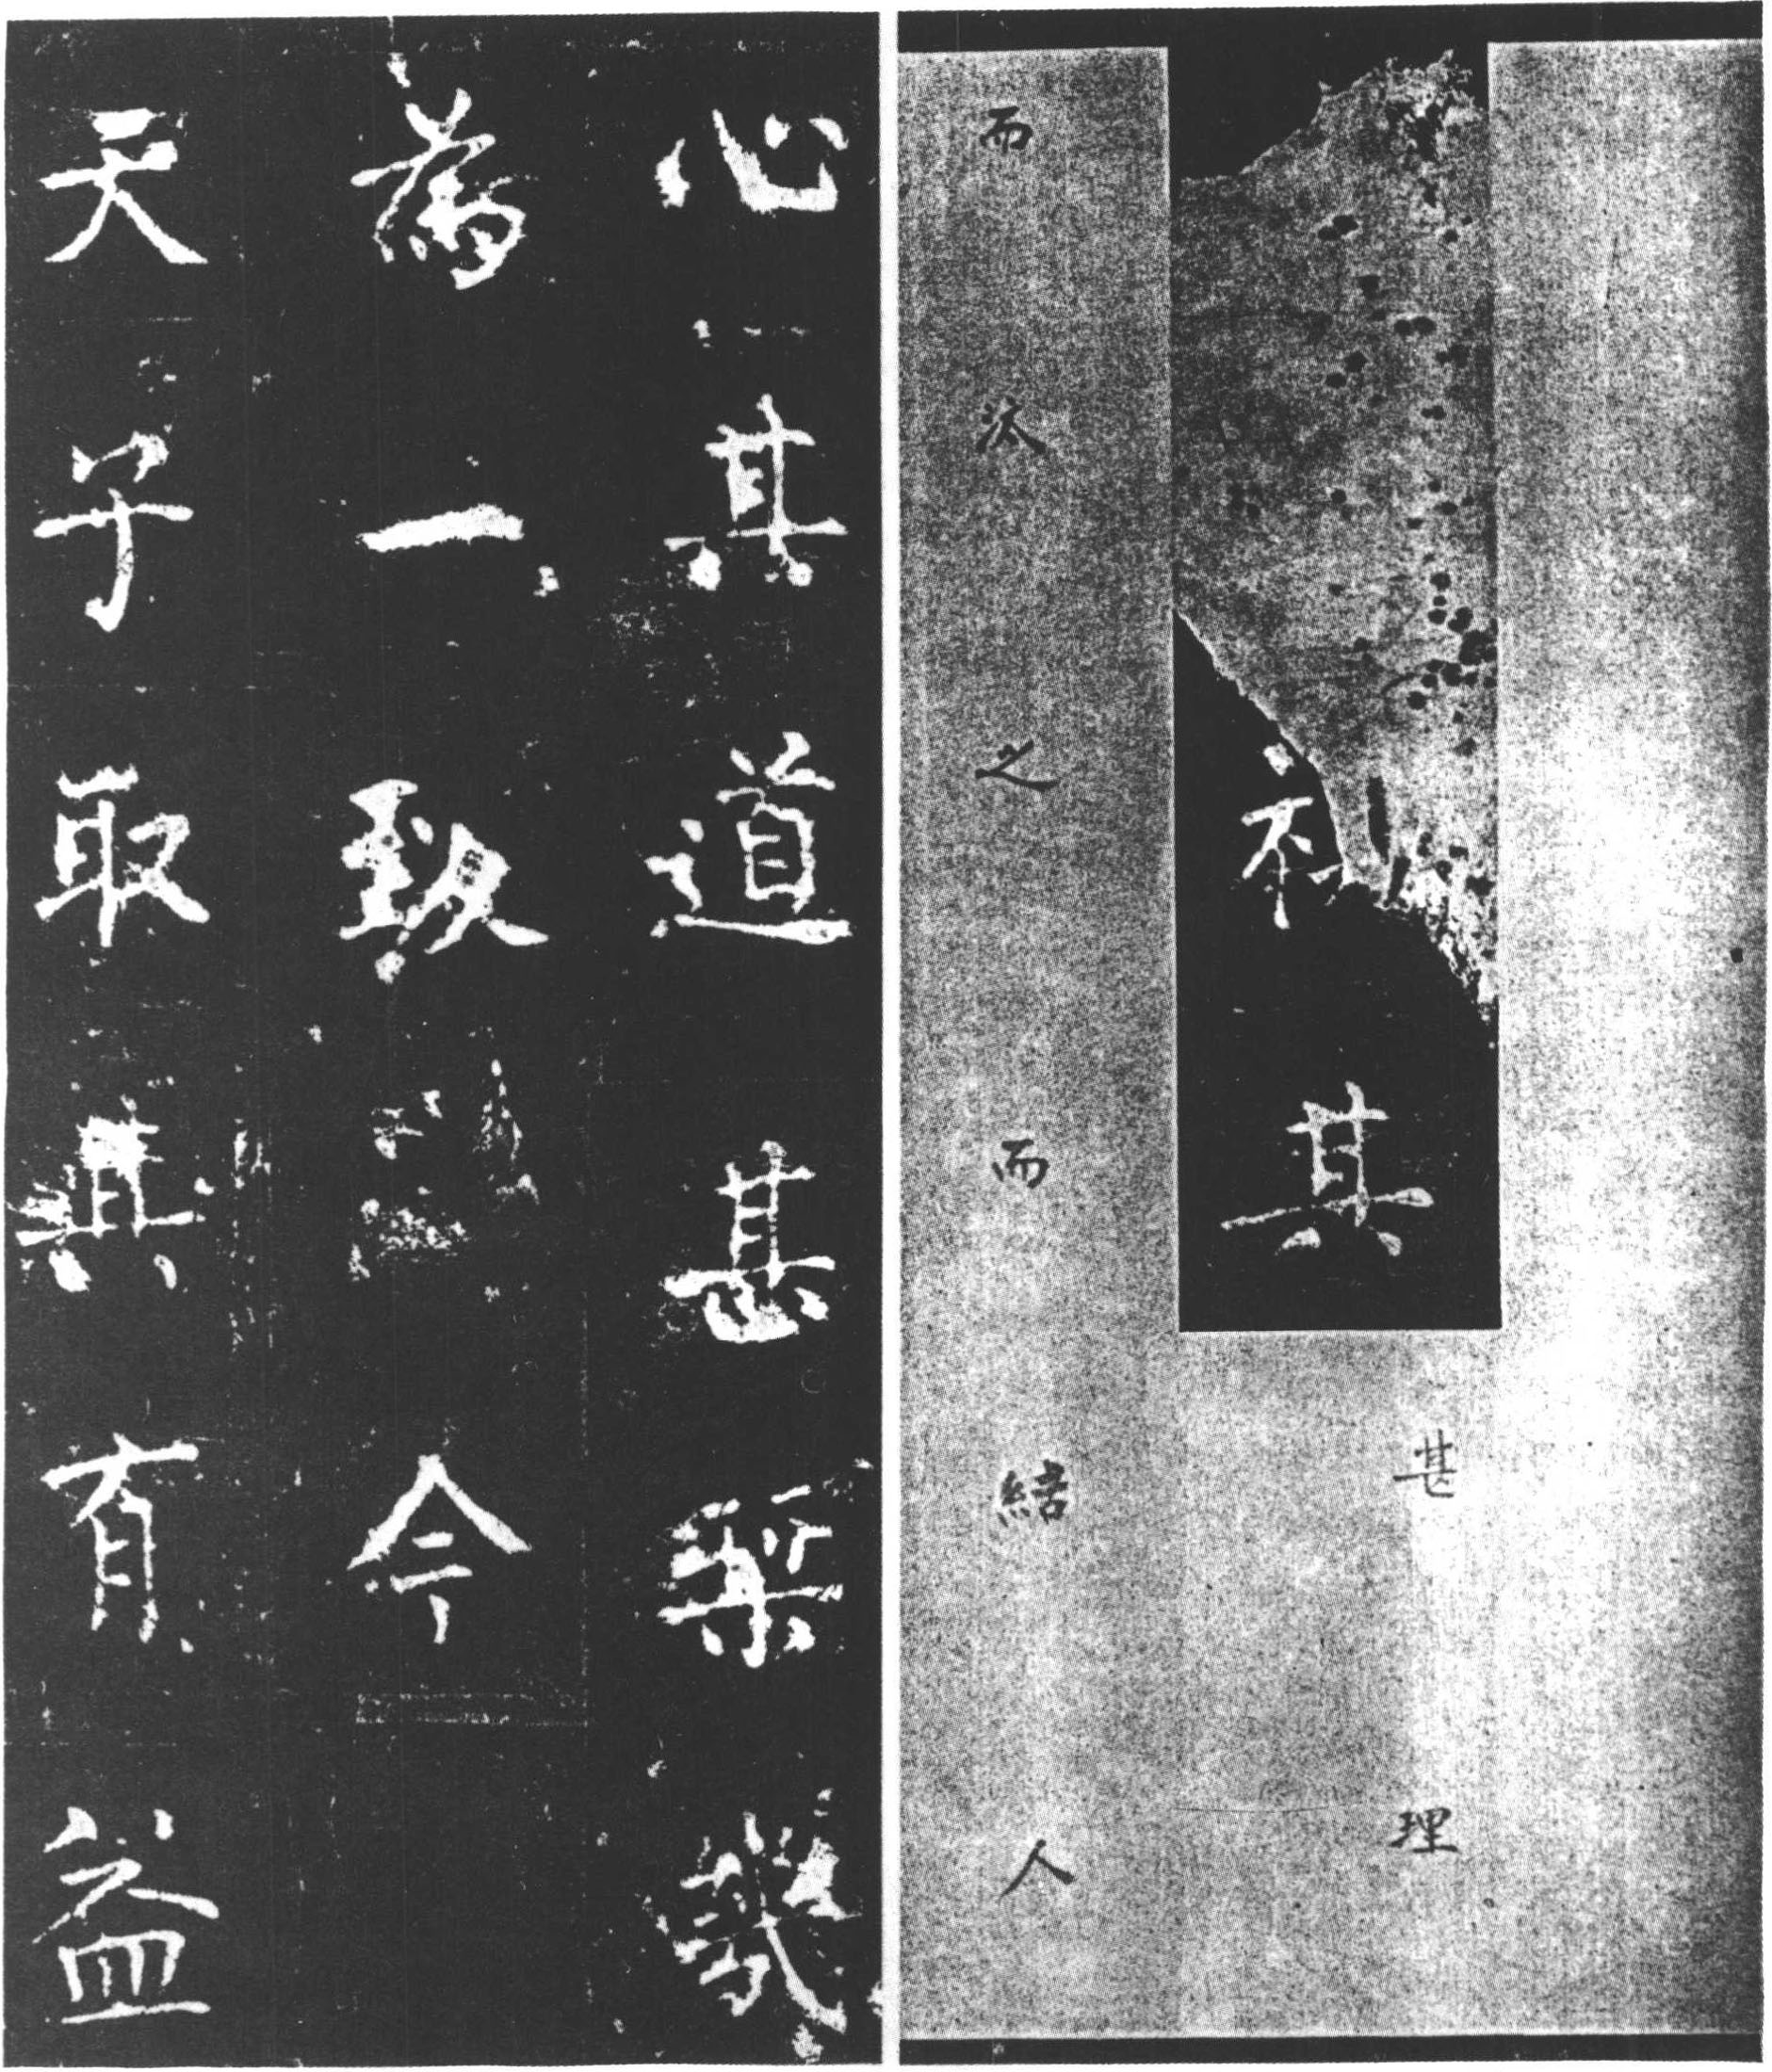 不其甚理
而汰之而結人
心其道甚幾
為一致今
天子取其有益